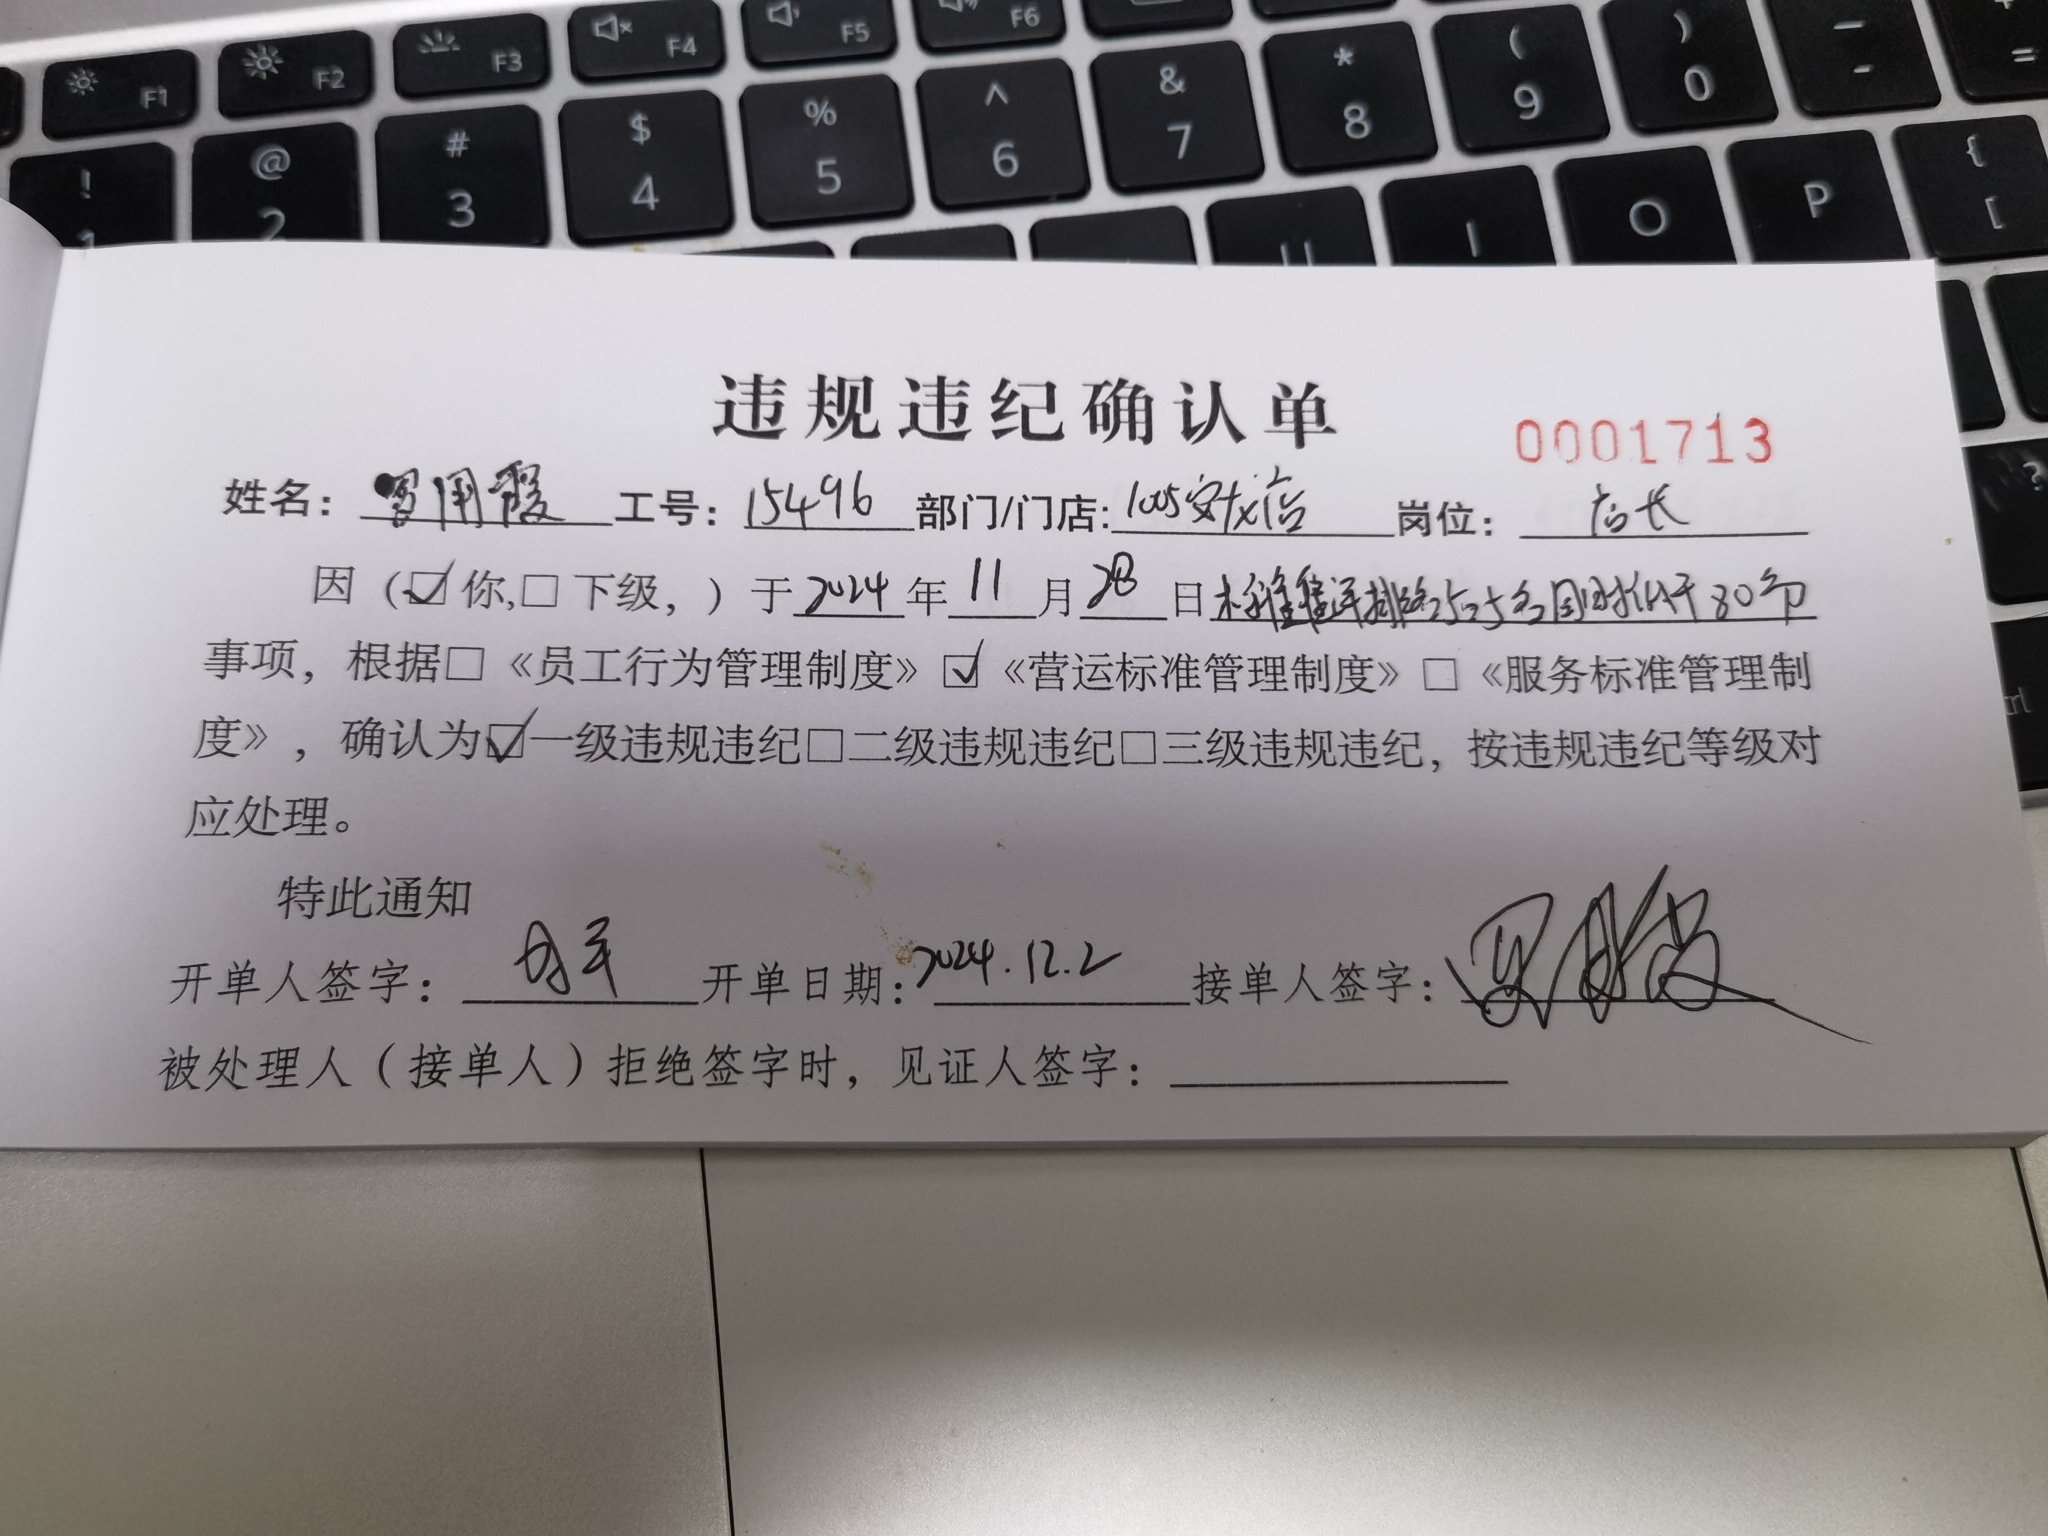 F1 F2 F3 F4 F5 F6
! 1 @ 2 # 3 $ 4 % 5 ^ 6 & 7 * 8 ( 9 ) 0 - = 
U I O P { [
违规违纪确认单
0001713
姓名： 用霞 工号：15496 部门/门店：1005安龙店 岗位：店长
因（☑你,□下级，）于2024年11月28日 低于80分
事项，根据□《员工行为管理制度》☑《营运标准管理制度》□《服务标准管理制
度》，确认为☑一级违规违纪□二级违规违纪□三级违规违纪，按违规违纪等级对
应处理。
特此通知
开单人签字： 开单日期：2024.12.2 接单人签字：
被处理人（接单人）拒绝签字时，见证人签字：